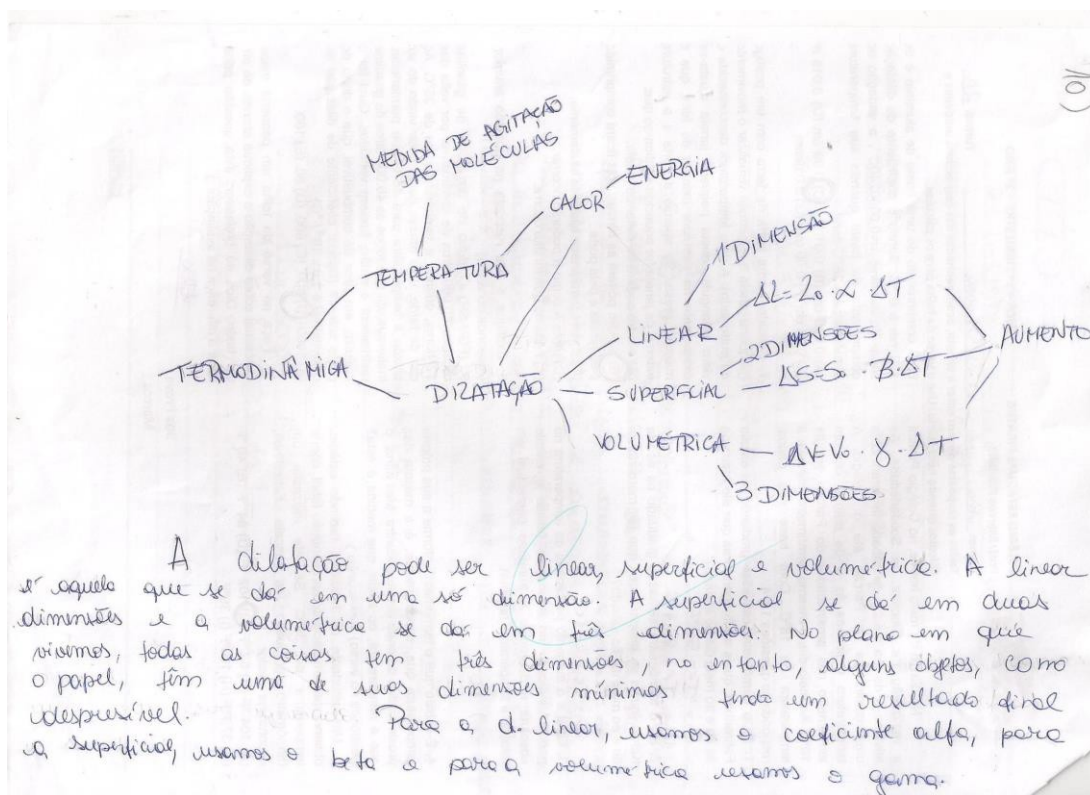 10)
MEDIDA DE AGITAÇÃO
DAS MOLÉCULAS
ENERGIA
CALOR
1 DIMENSÃO
TEMPERATURA
ΔL = L₀ · α · ΔT
LINEAR
2 DIMENSÕES
AUMENTO
TERMODINÂMICA
DILATAÇÃO
SUPERFCIAL
ΔS = S₀ · β · ΔT
VOLUMÉTRICA
ΔV = V₀ · γ · ΔT
3 DIMENSÕES
A dilatação pode ser linear, superficial e volumétrica. A linear
é aquela que se dá em uma só dimensão. A superficial se dá em duas
dimensões e a volumétrica se dá em três dimensões. No plano em que
vivemos, todas as coisas tem três dimensões, no entanto, alguns objetos, como
o papel, têm uma de suas dimensões mínimas tendo um resultado final
despresível. Para a d. linear, usamos o coeficiente alfa, para
a superficial, usamos o beta e para a volumétrica usamos o gama.